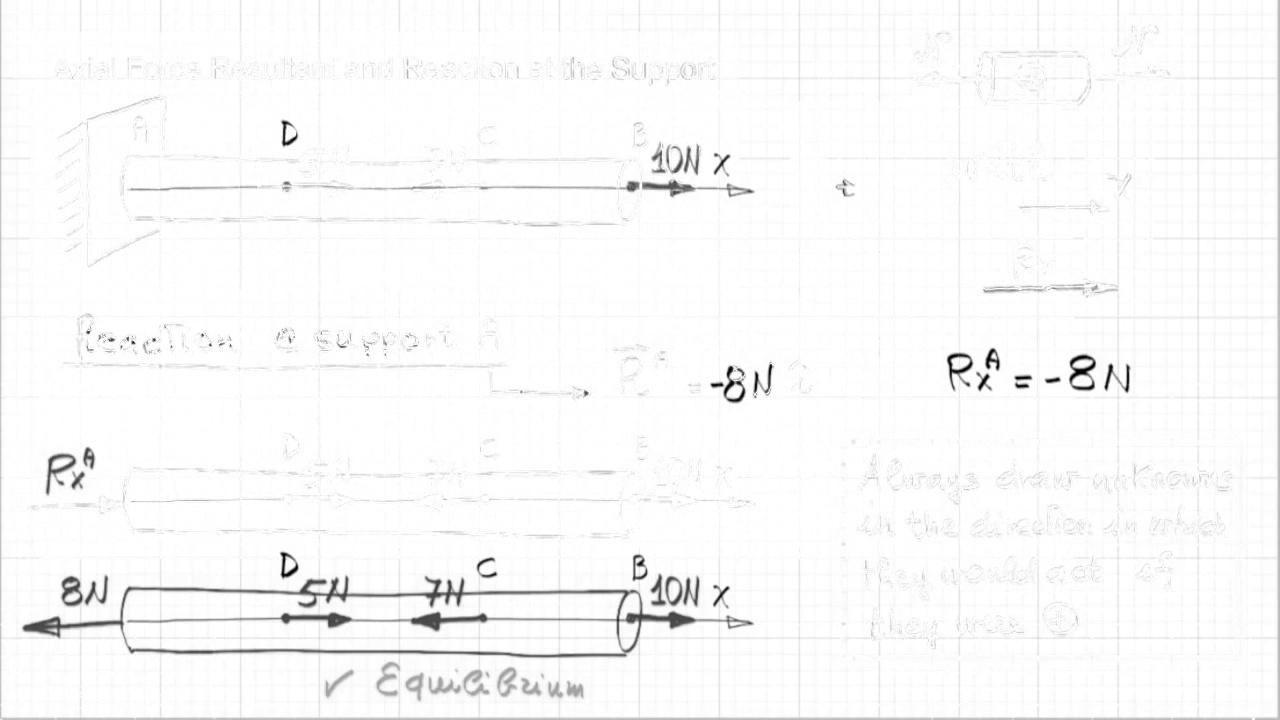 Axial Force Resultant and Reaction at the Support
A D 5N 7N C B 10N x
Reaction @ support A
R^A = -8N î
Rx^A = -8N
Rx^A D 5N 7N C B 10N x
Always draw unknowns
in the direction in which
they would act if
they were ⊕
8N D 5N 7N C B 10N x
✓ Equilibrium